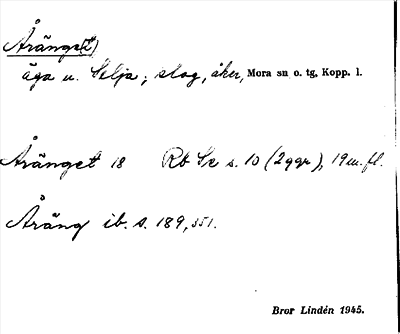 Åränge(t)
äga u. Selja; slog, åker, Mora sn o. tg, Kopp. l.
Åränget 18 Rb Se s. 10 (2 ggr), 19 m. fl.
Åräng ib. s. 189, 351.
Bror Lindén 1945.